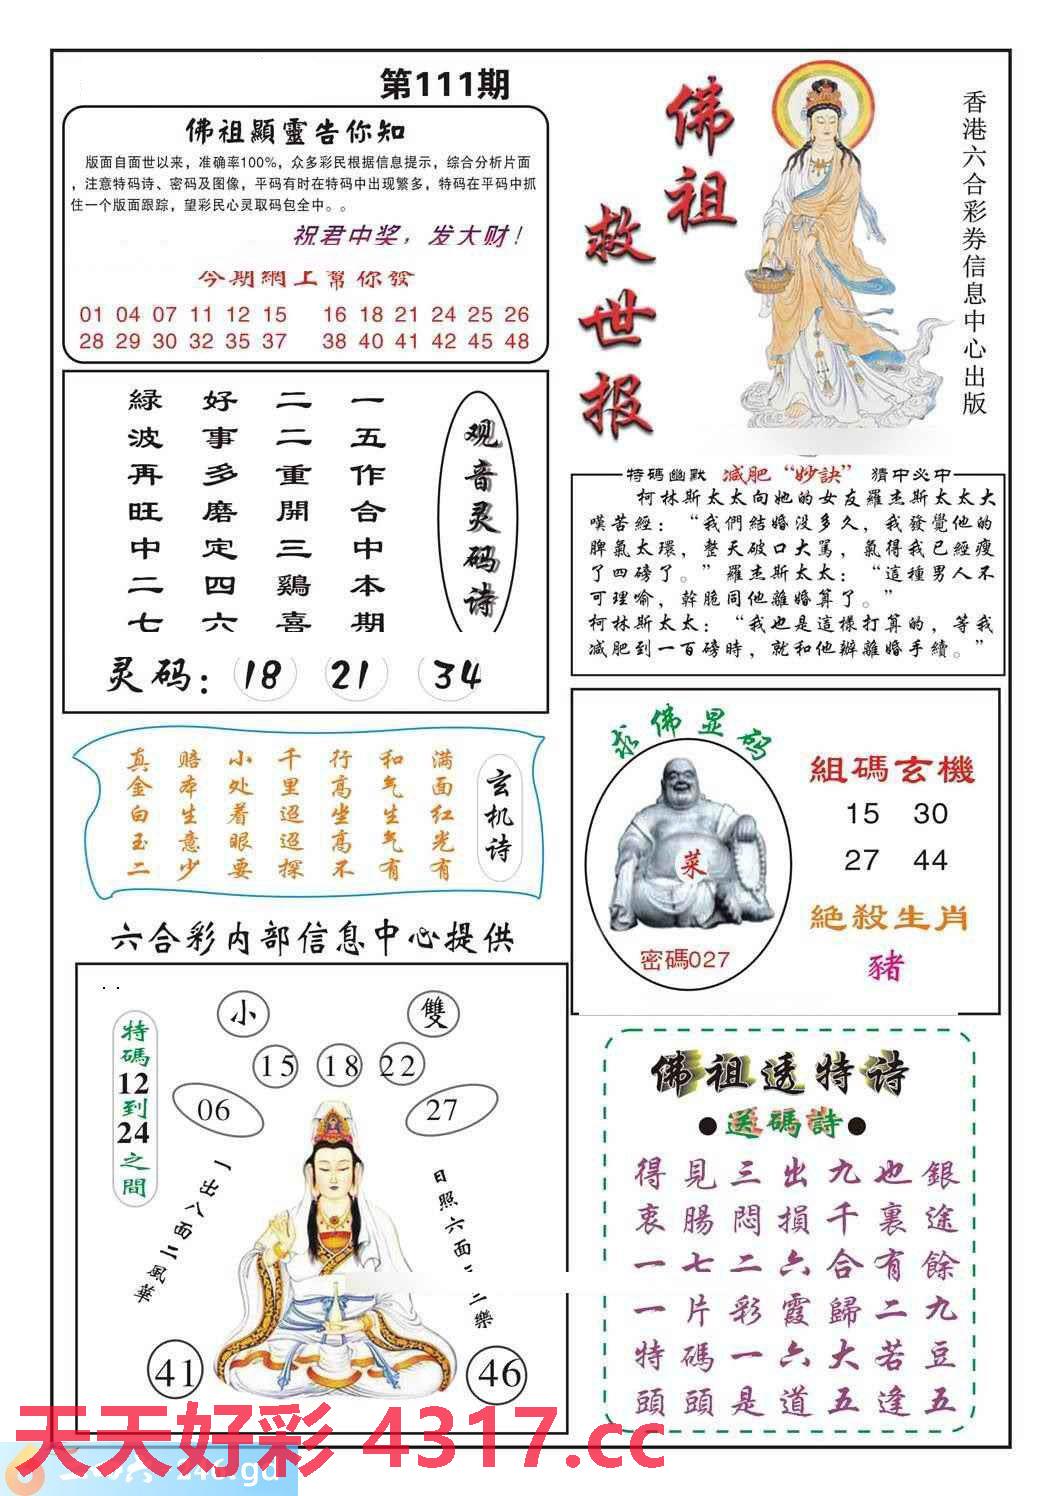 第111期
佛祖顯靈告你知
版面自面世以来，准确率100%，众多彩民根据信息提示，综合分析片面
，注意特码诗、密码及图像，平码有时在特码中出现繁多，特码在平码中抓
住一个版面跟踪，望彩民心灵取码包全中。。
祝君中奖，发大财！
今期網上幫你發
01 04 07 11 12 15 16 18 21 24 25 26
28 29 30 32 35 37 38 40 41 42 45 48
佛祖
救世报
香港六合彩券信息中心出版
观音灵码诗
一五作合中本期
二二重開三鷄喜
好事多磨定四六
緑波再旺中二七
灵码：18 21 34
特碼幽默 减肥“妙訣” 猜中必中
柯林斯太太向她的女友羅杰斯太太大
嘆苦經：“我們結婚没多久，我發覺他的
脾氣太環，整天破口大罵，氣得我已經瘦
了四磅了。”羅杰斯太太：“這種男人不
可理喻，幹脆同他離婚算了。”
柯林斯太太：“我也是這樣打算的，等我
减肥到一百磅時，就和他辦離婚手續。”
玄机诗
满面红光有
和气生气有
行高坐高不
千里迢迢探
小处着眼要
赔本生意少
真金白玉二
求佛显码
菜
密碼027
組碼玄機
15 30
27 44
絕殺生肖
豬
六合彩内部信息中心提供
特碼12到24之間
小
雙
15 18 22
06
27
一出八面二風華
日照六面二樂
41
46
佛祖透特诗
●送碼詩●
得見三出九也銀
衷腸悶損千裏途
一七二六合有餘
一片彩霞歸二九
特碼一六大若豆
頭頭是道五逢五
天天好彩 4317.cc
246.gd